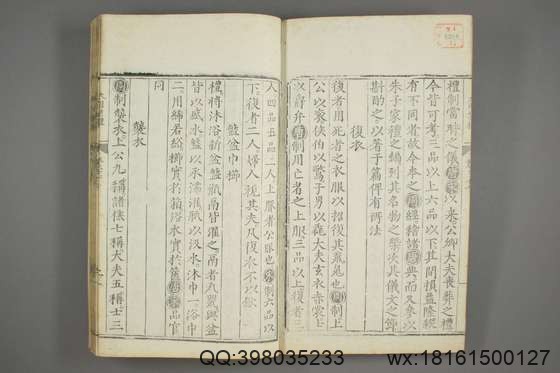 禮制當時之儀唐宋以來公卿大夫喪葬之禮
今皆可考三品以上六品以下其間損益隆殺
有不同者故今本之周經稽諸唐典而又參以
朱子家禮之編列其名物之槩次其儀文之節
斟酌之以著于篇俾有所法
復衣
復者用死者之衣服以招復其魂也周制上
公以衮侯伯以鷩子男以毳大夫玄衣赤裳士
以爵弁唐制用亡者之上服三品以上復者三
人四品五品二人上服者公服也宋制六品以
下復者二人婦人視其夫凡復衣不以斂
盤盆巾櫛
禮將沐浴新盆盤瓶鬲皆濯之鬲者瓦甖與盆
皆以盛水盤以承濡瓶以汲水沐巾一浴中
二用綌若絺櫛實於箱浴衣實於篋唐宋品官
同
襲衣
周制襲衣上公九稱諸侯七稱大夫五稱士三
QQ:398035233
wx:18161500127